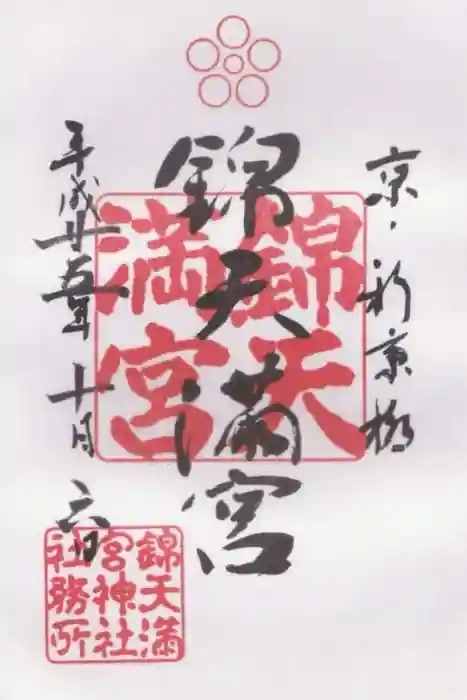 京・新京極
錦天満宮
平成廿五年十月六日
錦天
満宮
錦天満
宮神社
社務所